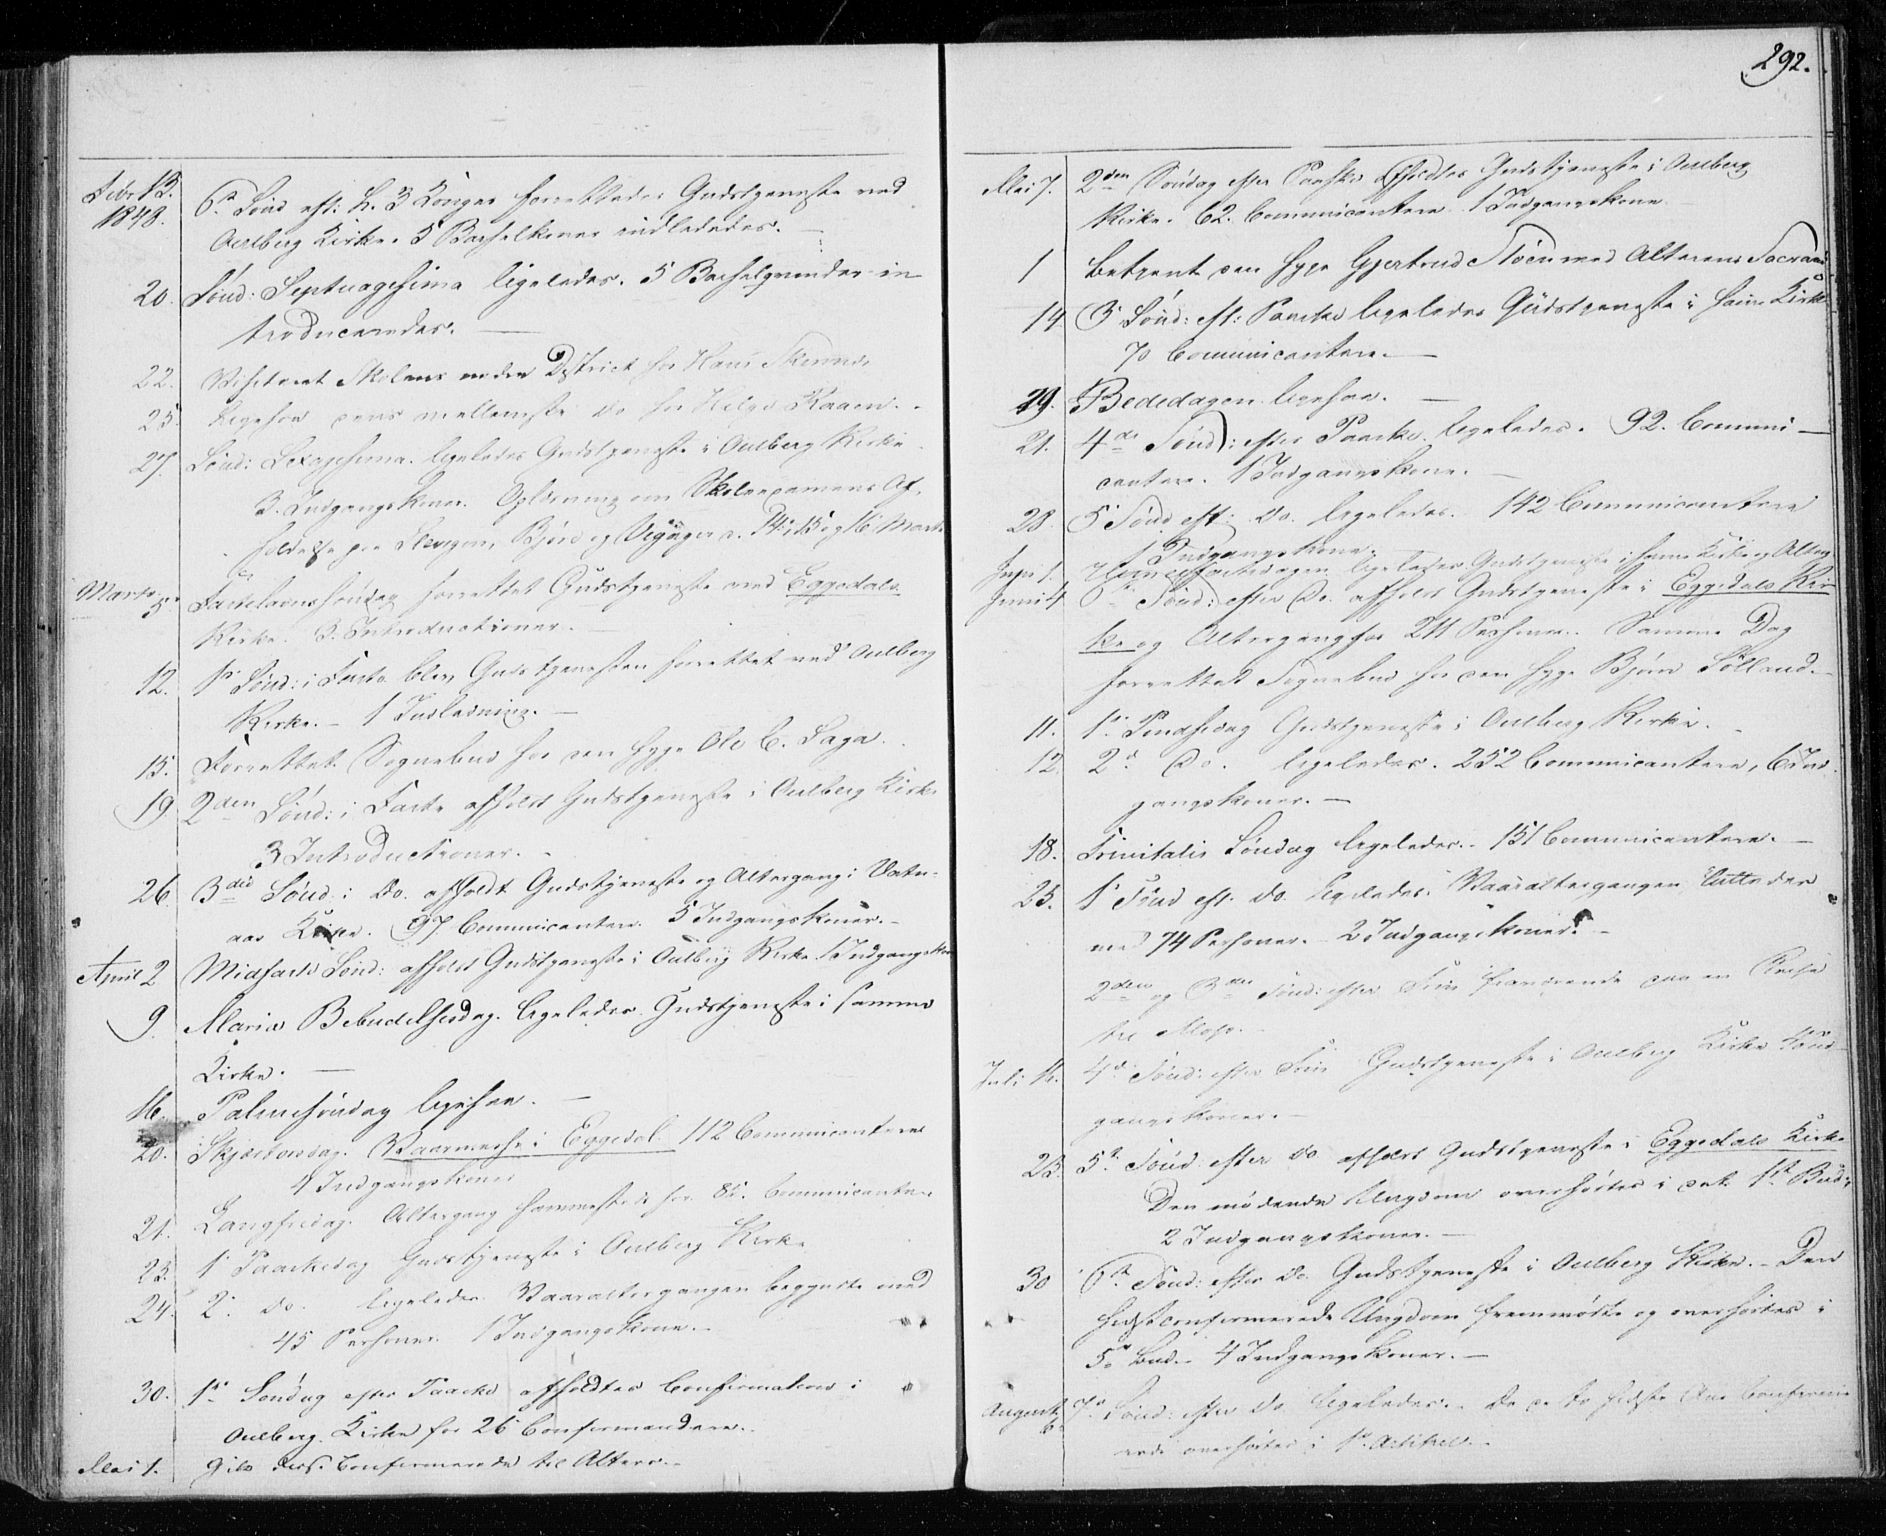 292.
Febr 13.
1848.
6te Sønd eft: H. 3 Konger forrettedes Gudstjeneste ved
Oulberg Kirke. 5 Barselkoner indlededes. —
20. Sønd: Septuagesima ligeledes. 5 Barselqvinder in
troduceredes. —
22. Visiteret Skolens nedre District hos Hans
25. Ligesaa dens mellemste do hos Helge Raaen. -
27. Sønd: Sexagesima ligeledes Gudstjeneste i Oulberg Kirke
3. Indgangskoner. Oplæsning om Skoleexamens Af-
holdelse paa Slevigen, Bjøre og 14, 15 og 16 Marts
Marts 5. Fastelavnssøndag forrettet Gudstjeneste ved Eggedals
Kirke. 3. Introductioner. —
12. 1e Sønd: i Faste blev Gudstjenesten forrettet ved Oulberg
Kirke. - 1 Indledning. —
15. Forrettet Sognebud hos den syge Ole C. Laga.
19. 2den Sønd: i Faste afholdt Gudstjeneste i Oulberg Kirke
3 Introductioner. -
26. 3die Sønd: i Do. afholdt Gudstjeneste og Altergang i Vatn-
aas Kirke. 97 Communicantere. 5 Indgangskoner. -
April 2 Midfaste Sønd: afholdt Gudstjeneste i Oulberg Kirke. 1 Indgangskone
9. Mariæ Bebudelsesdag. ligeledes Gudstjeneste i samme
Kirke. —
16. Palmesøndag ligesaa. —
20. Skjærtorsdag. Vaarmesse i Eggedal. 112 Communicantere
4 Indgangskoner
21. Langfredag. Altergang sammesteds for 85. Communicantere
23. 1e Paaskedag Gudstjeneste i Oulberg Kirke
24. 2. do. ligeledes. Vaaraltergangen begyndte med
45 Personer. 1 Indgangskone. -
30. 1ste Søndag efter Paaske afholdtes Confirmation i
Oulberg Kirke for 26 Confirmandere.
Mai 1. Gik disse Confirmerede til Alters. -
Mai 7. 2den Søndag efter Paaske afholdtes Gudstjeneste i Oulberg
Kirke. 62. Communicantere 1 Indgangskone
1 betjent den syge Gjertrud Støen med Alterens Sacram
14 3e Sønd: eft: Paaske ligeledes Gudstjeneste i samme Kirke
70 Communicantere. —
19. Bededagen ligesaa. —
21. 4de Sønd: efter Paaske ligeledes. 92. Communi-
cantere. 1 Indgangskone. —
28. 5e Sønd eft: Do. ligeledes. 142 Communicantere
1 Indgangskone.
Juni 1. Himmelfartsdagen ligeledes Gudstjeneste i samme Kirke og Alterg.
Juni 4 6te Sønd: efter Do. afholdt Gudstjeneste i Eggedals Kir
ke og Altergang for 211 Personer. Samme Dag
forrettet Sognebud hos den syge Bjørn Sølland. -
11. 1e Pindsedag Gudstjeneste i Oulberg Kirke. -
12. 2e Do. ligeledes. 252 Communicantere, 6 Ind
gangskoner. —
18. Trinitatis Søndag ligeledes. - 151 Communicantere. —
25. 1e Sønd eft. do. ligeledes. Vaaraltergangen sluttedes
med 74 Personer. - 2 Indgangskoner. -
2den og 3die Sønd: efter Trin fraværende paa en Reise
til Moss. -
Juli 16. 4de Sønd: efter Trin Gudstjeneste i Oulberg Kirke
gangskoner. -
23. 5te Sønd efter do afholdt Gudstjeneste i Eggedals Kirke
Den mødende Ungdom overhørtes i det 1ste Bud.
2 Indgangskoner. —
30 6te Sønd: efter do. Gudstjeneste i Oulberg Kirke. - Den
sidst confirmerede Ungdom fremmødte og overhørtes i
5te Bud. - 4 Indgangskoner. —
August 6. 7de Sønd: efter do ligeledes. - De sidste Aar Confirme
rede overhørtes i 1e Artikel. -